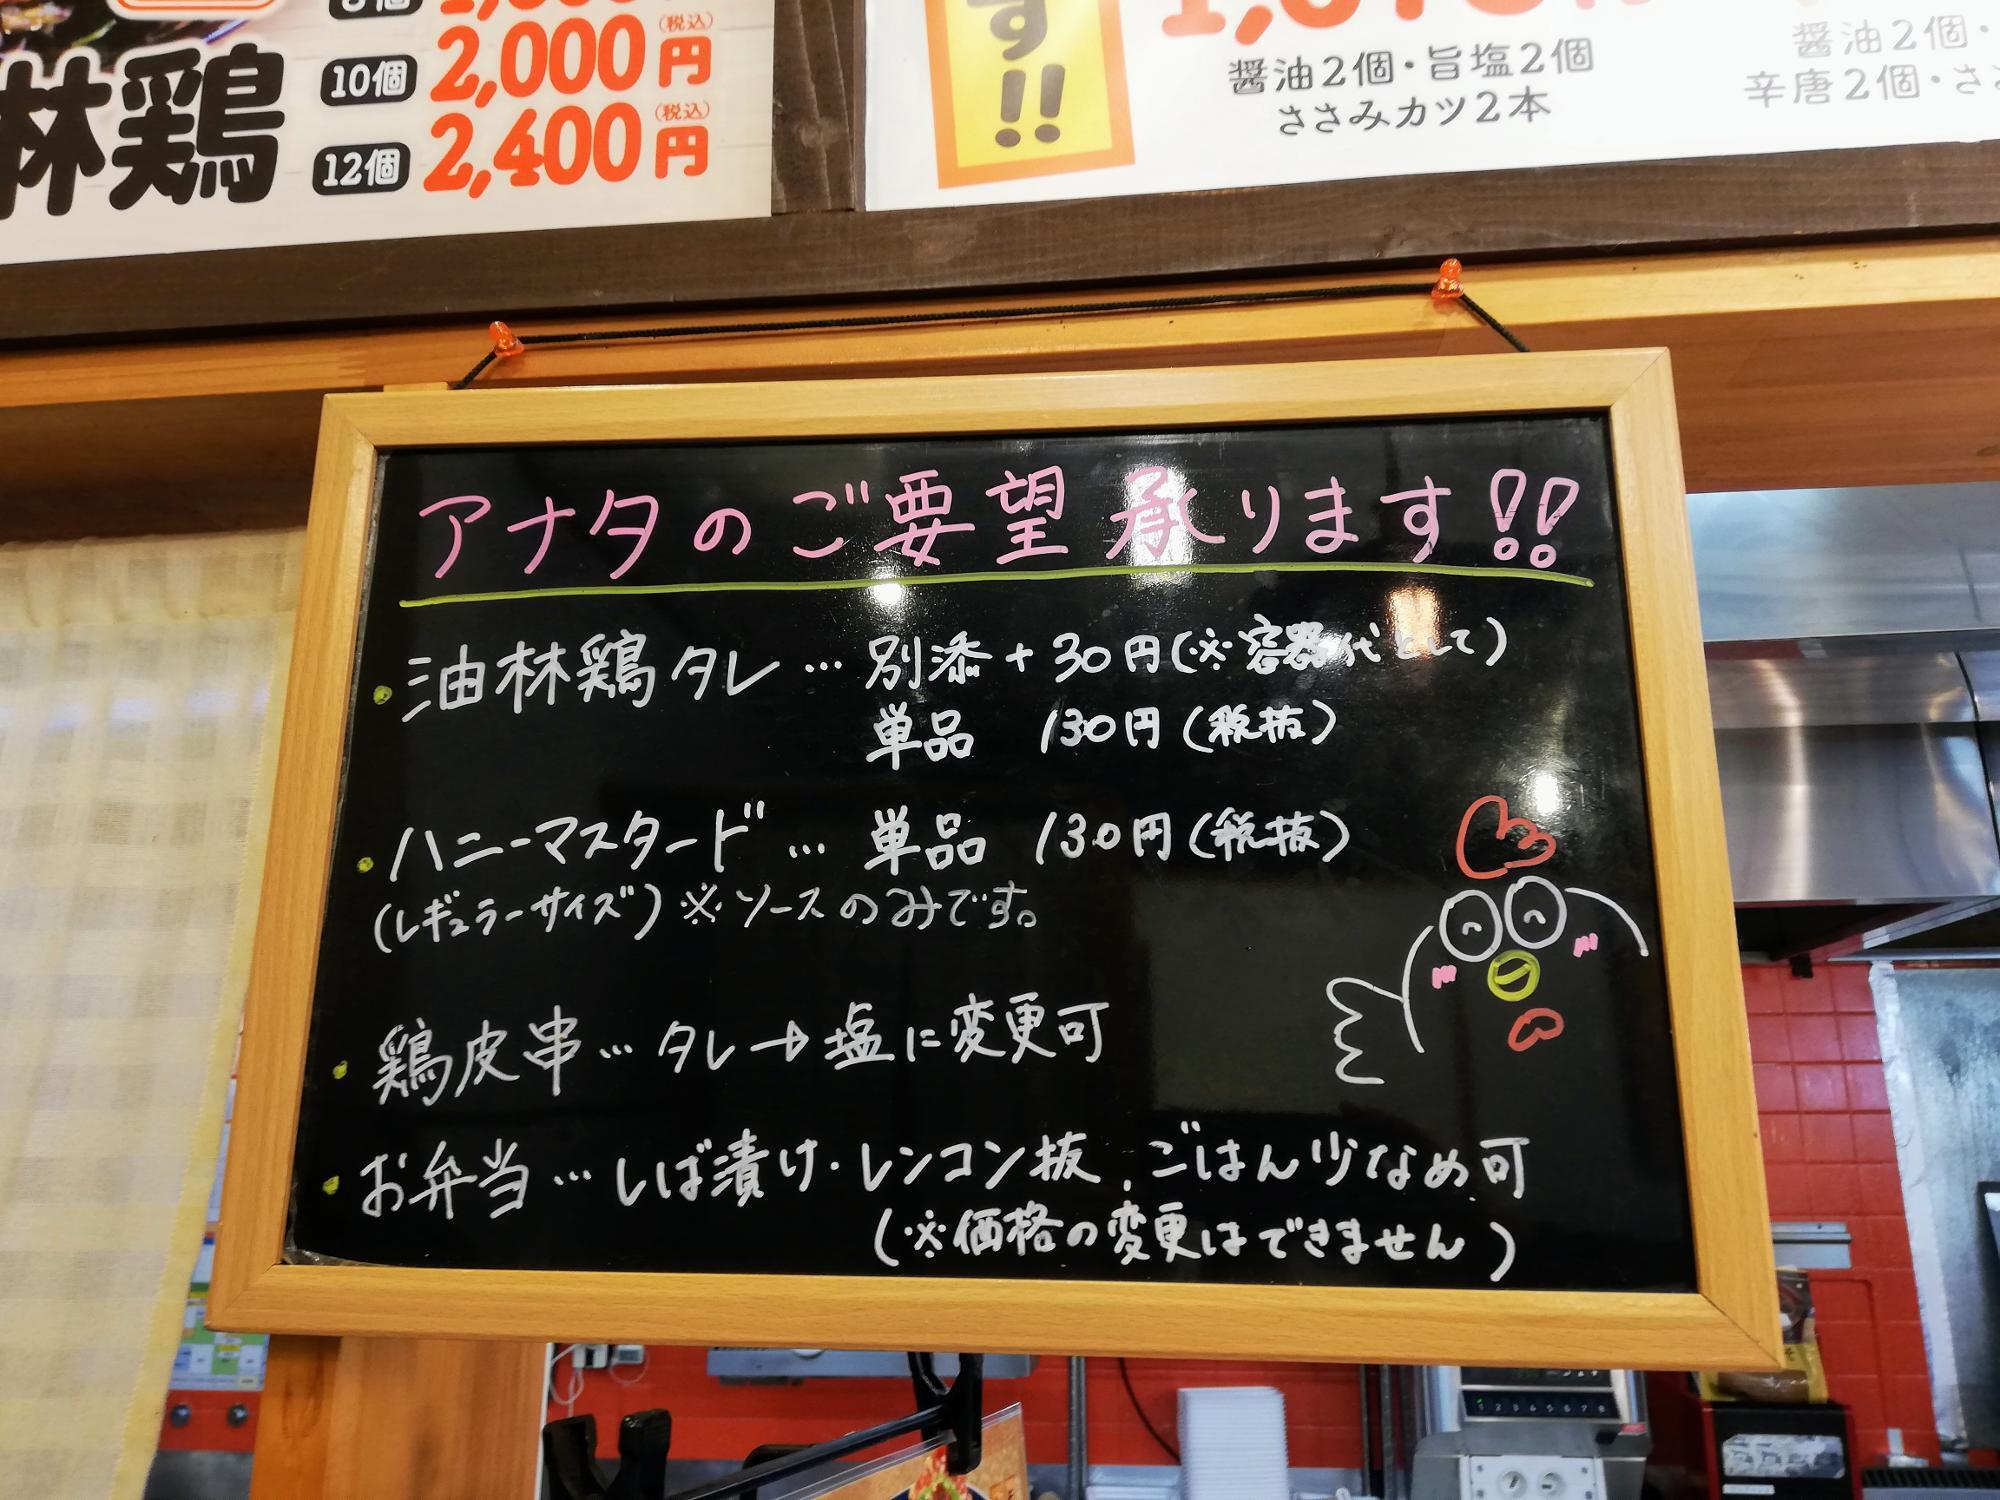 林鶏
10個 2,000円(税込)
12個 2,400円(税込)
す!!
醤油2個・旨塩2個
ささみカツ2本
醤油2個・
辛唐2個・さ
アナタのご要望承ります!!
・油林鶏タレ…別添+30円(※容器代として)
単品 130円(税抜)
・ハニーマスタード…単品 130円(税抜)
(レギュラーサイズ)※ソースのみです。
・鶏皮串…タレ→塩に変更可
・お弁当…しば漬け・レンコン抜、ごはん少なめ可
(※価格の変更はできません)